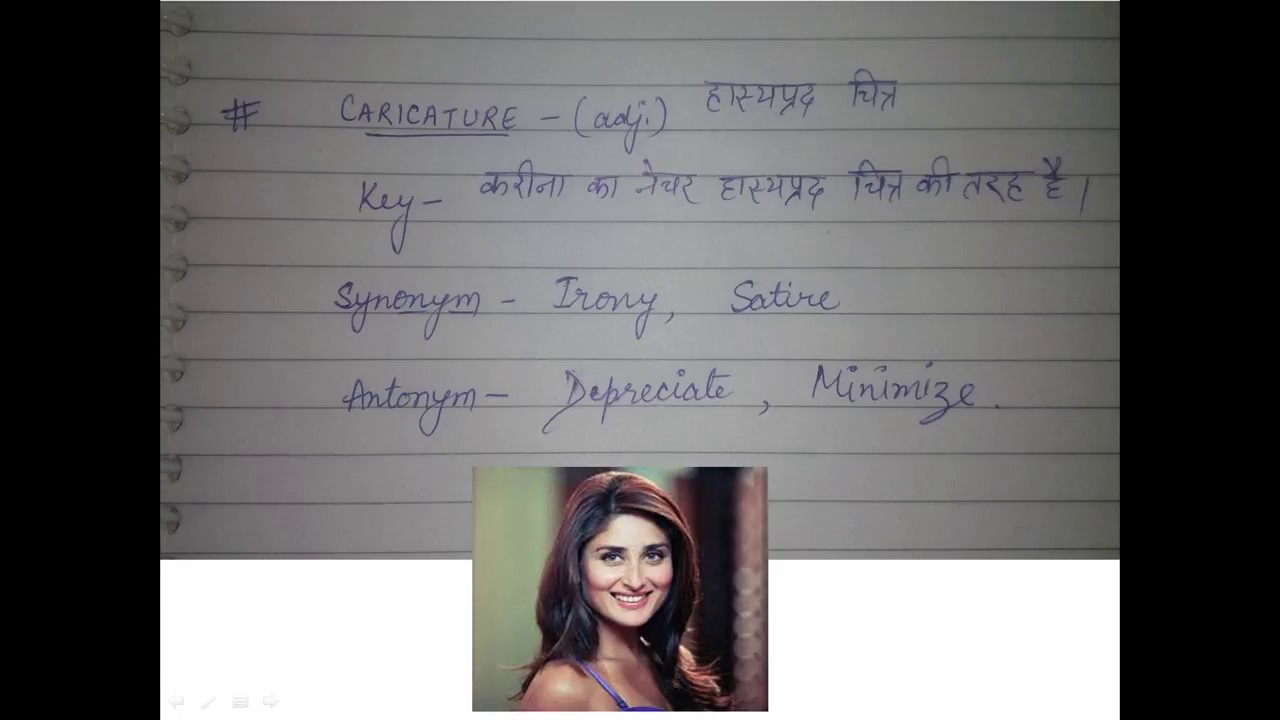 # CARICATURE - (adj.) हास्यप्रद चित्र
Key - करीना का नेचर हास्यप्रद चित्र की तरह है।
Synonym - Irony, Satire
Antonym - Depreciate, Minimize.